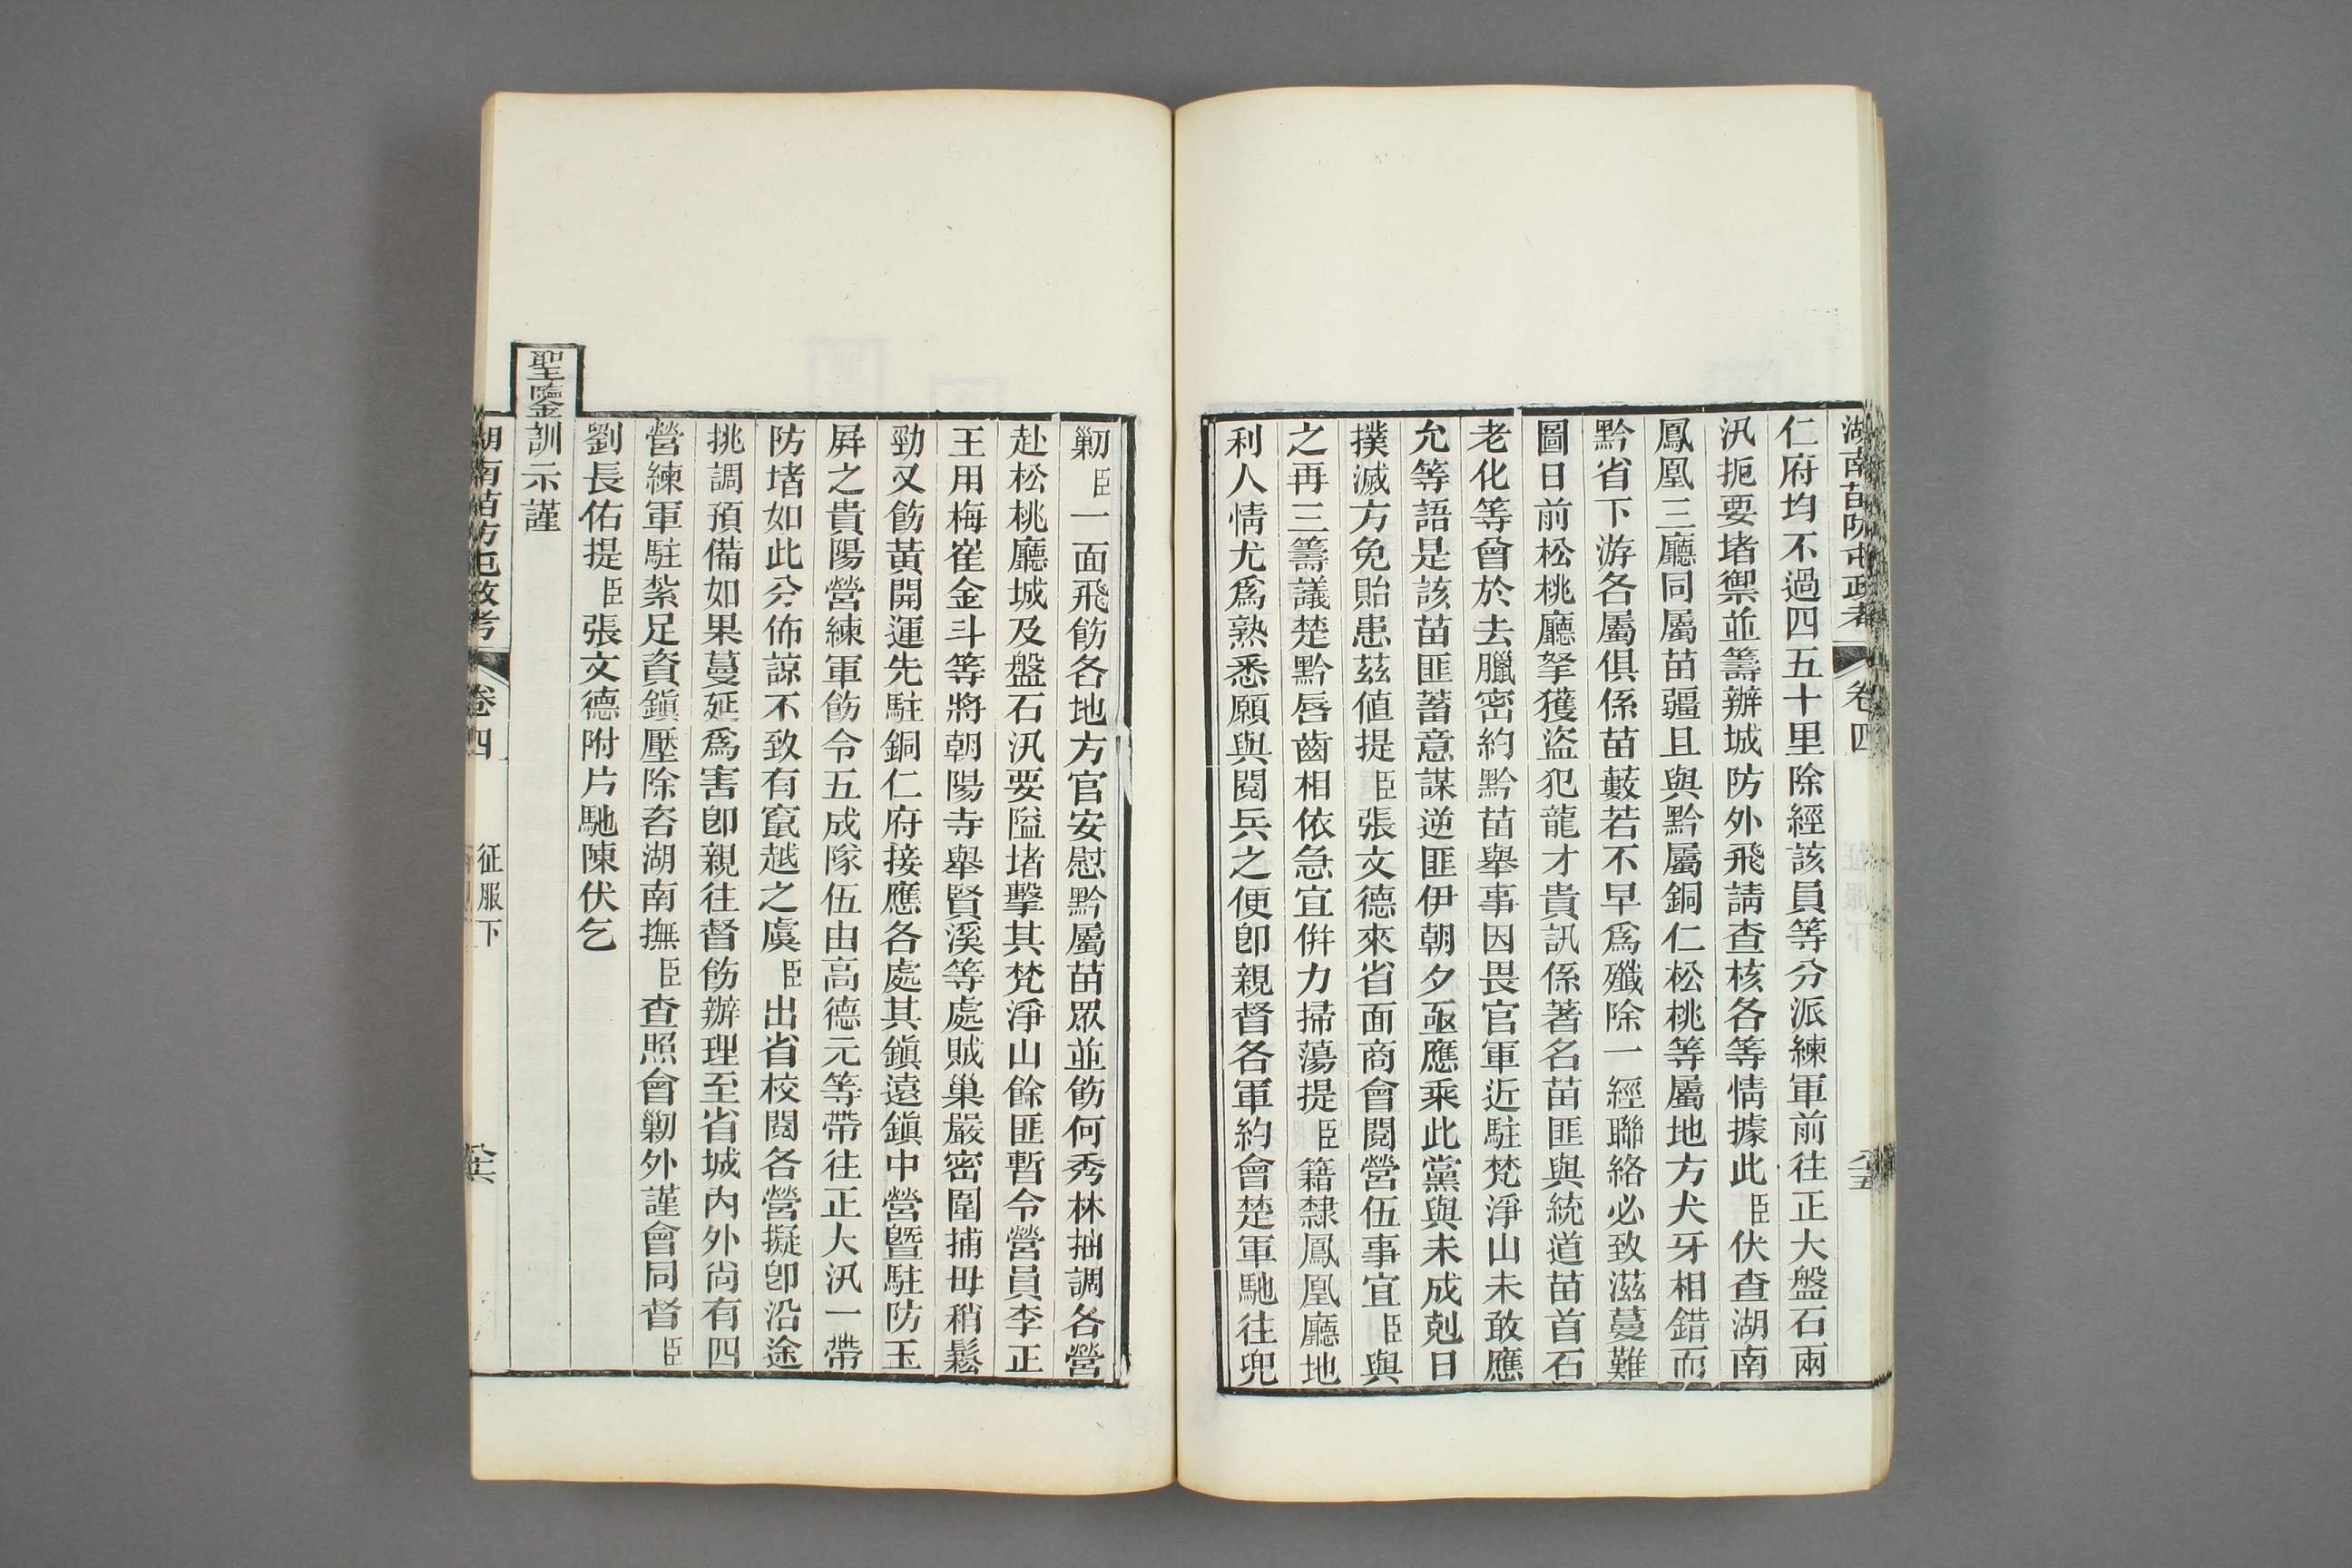 湖南苗防屯政考 卷四 八十五
仁府均不過四五十里除經該員等分派練軍前往正大盤石兩
汛扼要堵禦並籌辦城防外飛請查核各等情據此臣伏查湖南
鳳凰三廳同屬苗疆且與黔屬銅仁松桃等屬地方犬牙相錯而
黔省下游各屬俱係苗藪若不早爲殲除一經聯絡必致滋蔓難
圖日前松桃廳拏獲盜犯龍才貴訊係著名苗匪與統道苗首石
老化等曾於去臘密約黔苗舉事因畏官軍近駐梵淨山未敢應
允等語是該苗匪蓄意謀逆匪伊朝夕亟應乘此黨與未成剋日
撲滅方免貽患茲值提臣張文德來省面商會閱營伍事宜臣與
之再三籌議楚黔唇齒相依急宜併力掃蕩提臣籍隸鳳凰廳地
利人情尤爲熟悉願與閱兵之便卽親督各軍約會楚軍馳往兜
剿臣一面飛飭各地方官安慰黔屬苗眾並飭何秀林抽調各營
赴松桃廳城及盤石汛要隘堵擊其梵淨山餘匪暫令營員李正
王用梅崔金斗等將朝陽寺舉賢溪等處賊巢嚴密圍捕毋稍鬆
勁又飭黃開運先駐銅仁府接應各處其鎮遠鎮中營曁駐防玉
屏之貴陽營練軍飭令五成隊伍由高德元等帶往正大汛一帶
防堵如此分佈諒不致有竄越之虞臣出省校閱各營擬卽沿途
挑調預備如果蔓延爲害卽親往督飭辦理至省城內外尚有四
營練軍駐紮足資鎮壓除咨湖南撫臣查照會剿外謹會同督臣
劉長佑提臣張文德附片馳陳伏乞
聖鑒訓示謹
湖南苗防屯政考 卷四 征服下 八十六